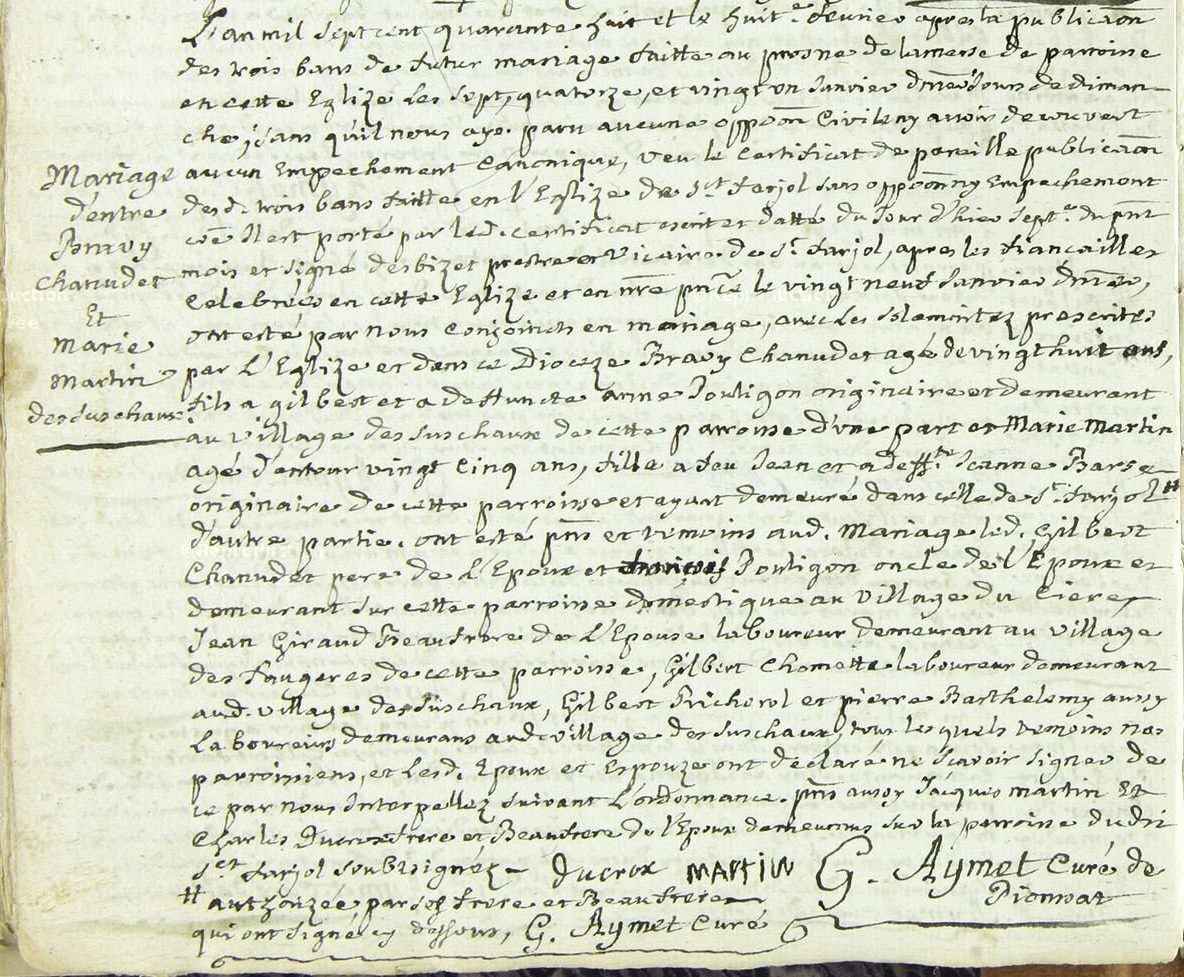 L'an mil sept cent quarante huit et le huit.e fevrier apres la publicaon
des trois bans de futur mariage faitte au prosne de la messe de parroisse
en cette Eglize les sept, quatorze, et vingt un Janvier dnier Jours de diman
che, sans qu'il nous aye paru aucune oppoon Civile ny avoir decouvert
aucun Empechement Canonique, veu le Certificat de pareille publicaon
desd. trois bans faitte en l'Eglize de St farjol sans oppoon ny Empechement
coe Il est porté par led. certificat escrit et datté du Jour d'hier sept.e du pnt
mois et signé desbizet prestre et vicaire de St. farjol, apres les fiancailles
Celebrées en cette Eglize et en nre pnce le vingt neuf Janvier dnier,
ont esté par nous conjoincts en mariage, avec les solemnitez prescrites
par L'Eglize et dans ce Dioceze Bravy Chanudet agé de vingt huit ans,
fils a gilbert et a deffuncte anne Pouligon originaire et demeurant
au village des suschaux de cette parroisse d'une part et Marie Martin
agé d'entour vingt Cinq ans, fille a feu Jean et a deff.te Jeanne Barse
originaire de cette parroisse et ayant demeuré dans celle de St. farjol #
d'autre partie. ont esté pnts et temoins aud. Mariage led. Gilbert
Chanudet pere de L'Epoux et françois Pouligon oncle de l'Epoux et
demeurant sur cette parroisse domestique au village du
Jean Giraud Beaufrere de L'Epouse laboureur demeurant au village
des faugeres de cette parroisse, Gilbert Chomette laboureur demeurant
aud. village des suschaux, Gilbert Pricherol et pierre Barthelemy aussy
Laboureurs demeurans aud. village des suschaux, tous lesquels temoins nos
parroissiens, et lesd. Epoux et Espouze ont déclaré ne scavoir signer de
ce par nous Interpellez suivant L'ordonnance. pnts aussy Jacques martin Et
Charles Ducrox frere et Beaufrere de l'Epouse demeurans sur la parroisse dudit
St farjol soubsignéz - Ducrox MARTIN G. Aymet Curé de
Pionnat
# authorizée par ses frere et Beaufrere
qui ont signé cy dessous, G. Aymet Curé
Mariage
d'entre
Bravy
Chanudet
Et
Marie
Martin
des suschaux